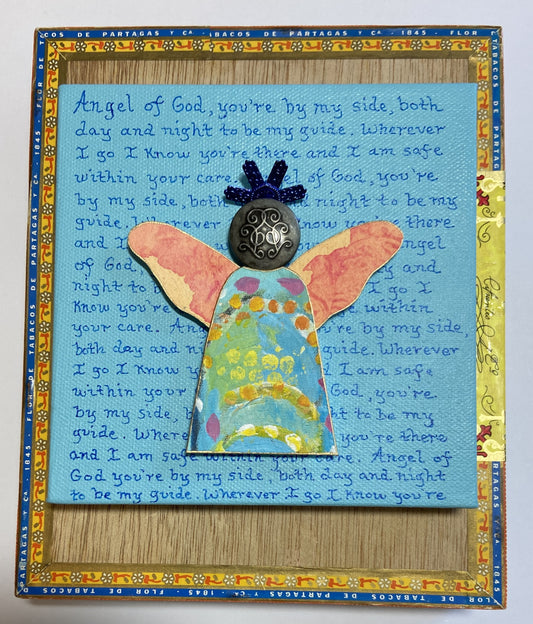 DE TABACOS DE PARTAGAS Y CA · 1845 · FLOR
Angel of God, you're by my side, both
day and night to be my guide. Wherever
I go I know you're there and I am safe
within your care. Angel of God, you're
by my side, both and night to be my
guide. Wherever you're there
and I Angel
of God, y and
night to I go I
know you're within
your care. An u're by my side,
both day and guide. Wherever
I go I know am safe
within your God, you're
by my side, b t to be my
guide. Where you're there
and I am safe within your care. Angel of
God you're by my side, both day and night
to be my guide. Wherever I go I know you're
60
FLOR DE TABACOS DE PARTAGAS Y CA · 1845
DE TABACOS DE PARTAGAS Y CA · 1845 · FLOR
FLOR DE TABACOS DE PARTAGAS Y CA · 1845 ·